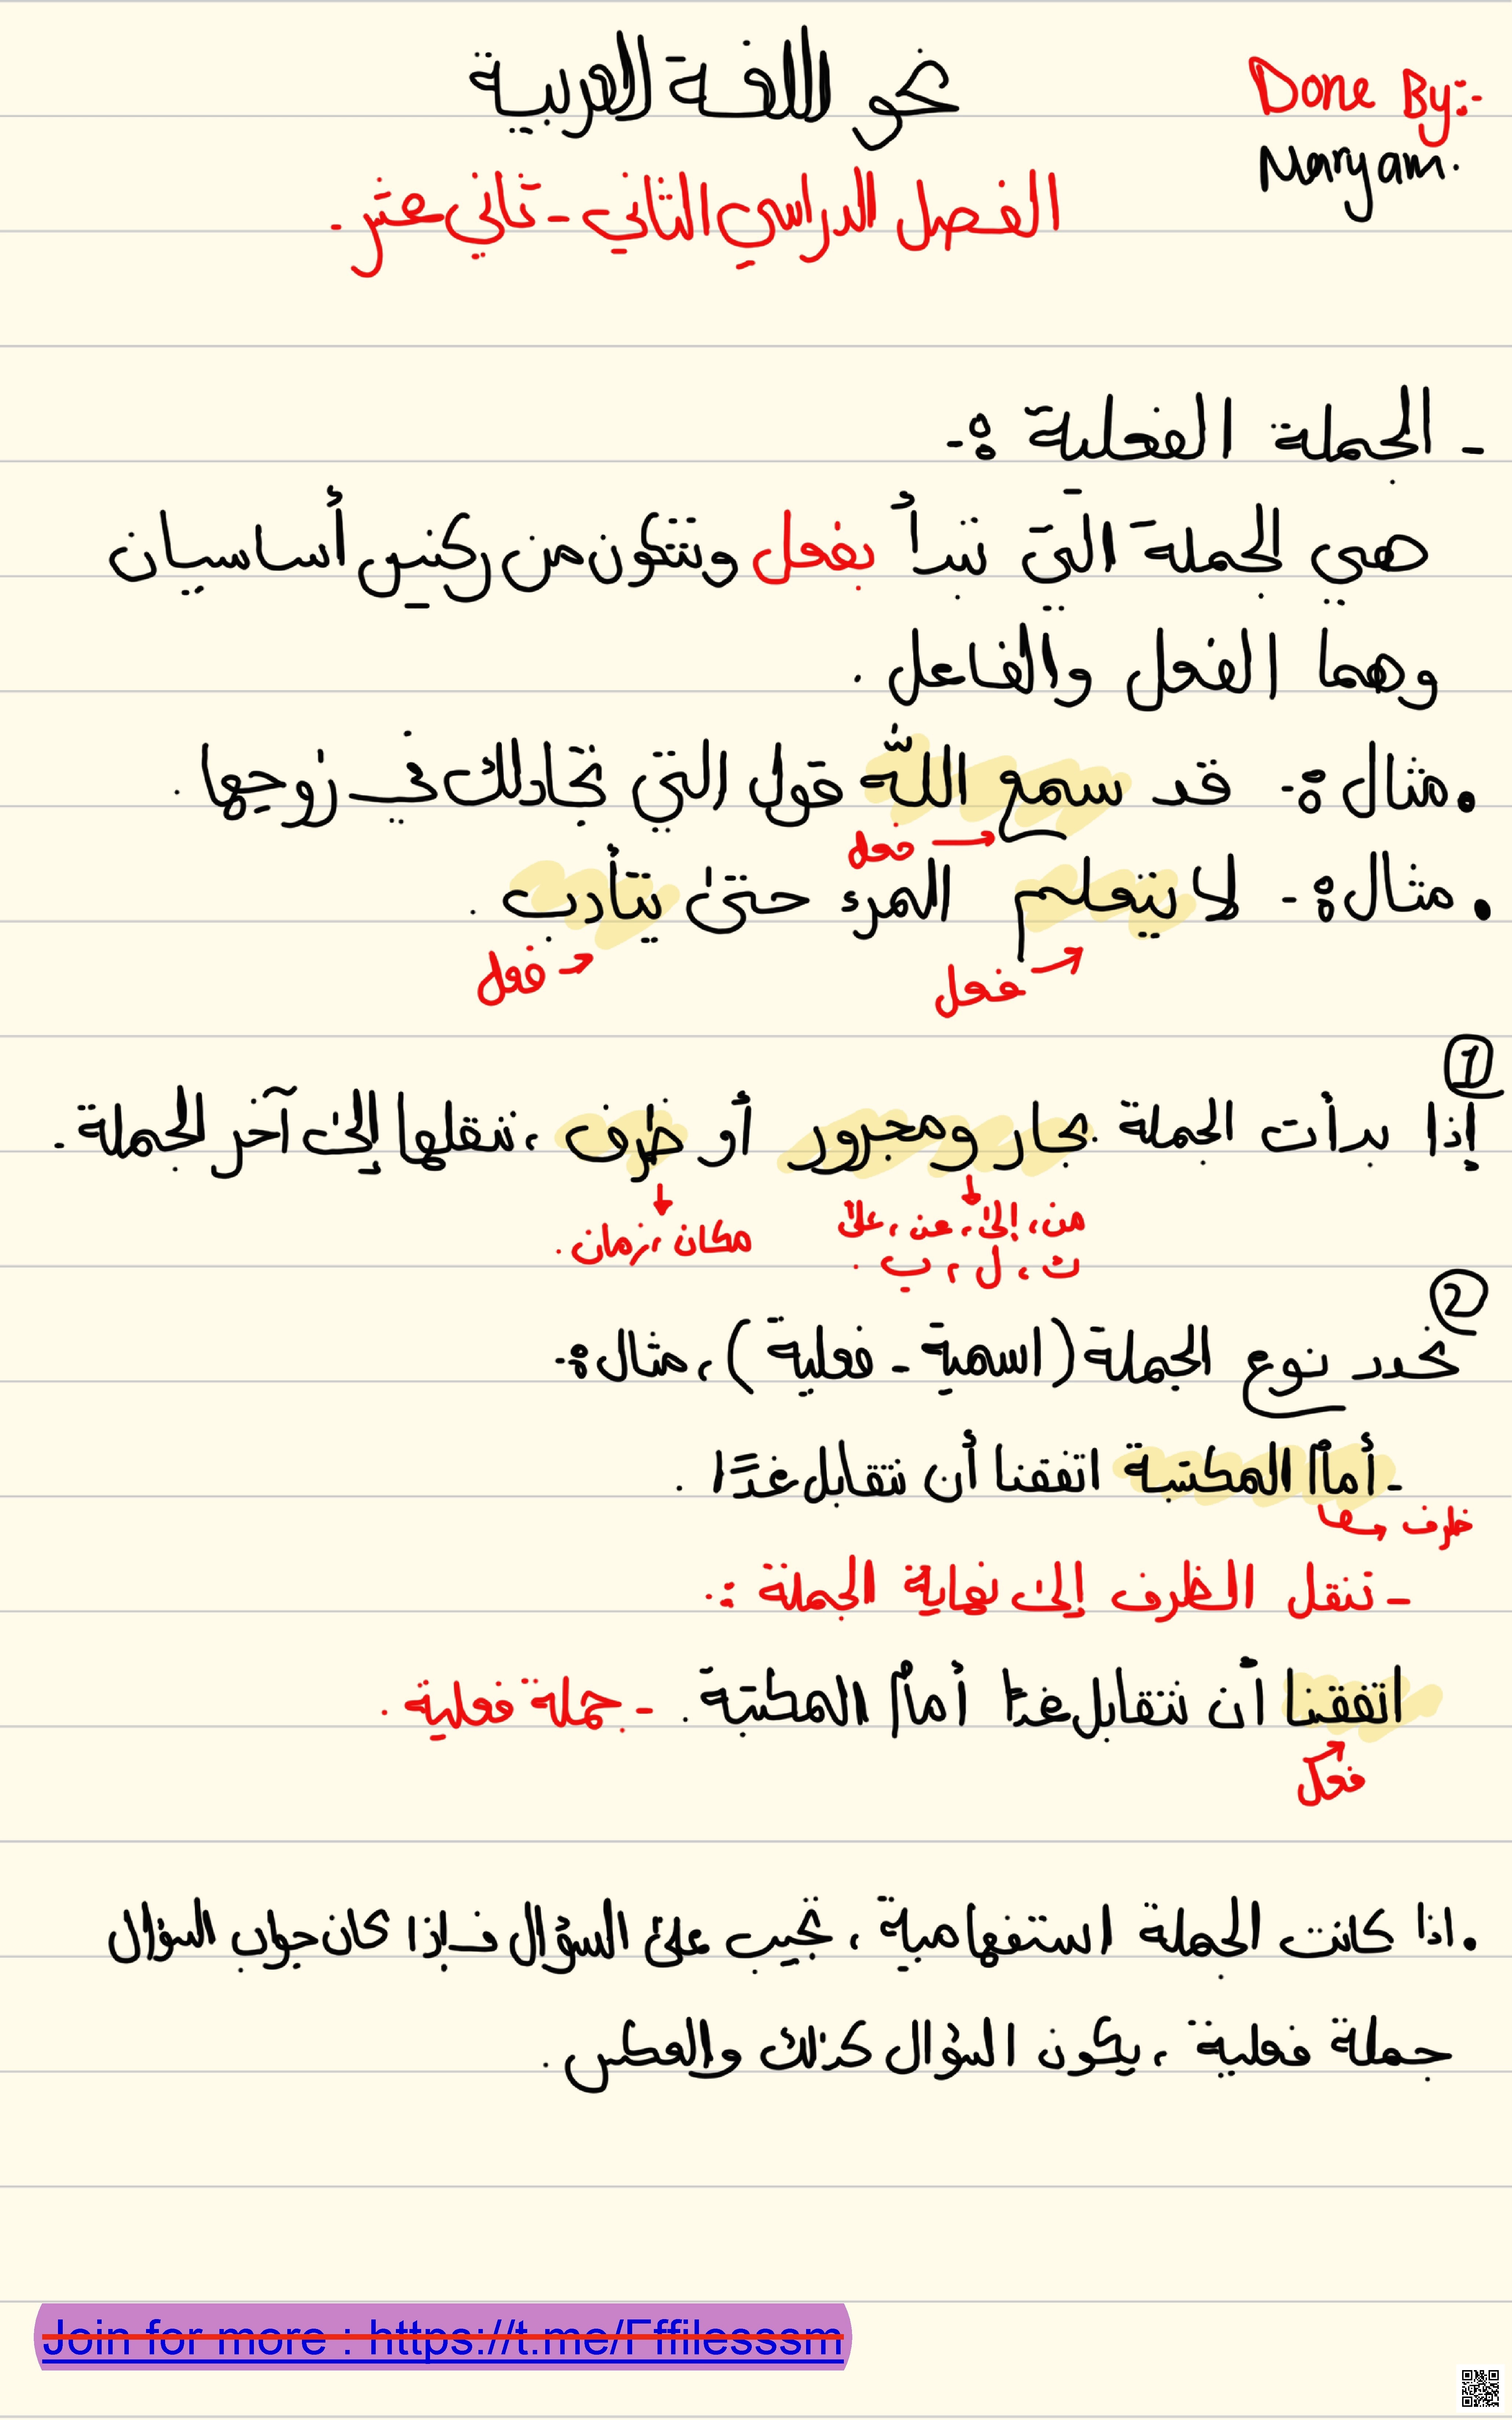 Done By:-
Maryam.
نحو اللغة العربية
الفصل الدراسي الثاني - ثاني عشر -
- الجملة الفعلية :-
هي الجملة التي تبدأ بفعل وتتكون من ركنين أساسيان
وهما الفعل والفاعل .
. مثال :- قد سمع اللّه قول التي تجادلك في زوجها .
فعل
. مثال :- لا يتعلم المرء حتى يتأدب .
فعل فعل
1
إذا بدأت الجملة بجار ومجرور أو ظرف ، ننقلها إلى آخر الجملة .
من ، إلى ، عن ، على مكان ، زمان .
ل ، ب .
2
نحدد نوع الجملة ( اسمية - فعلية ) ، مثال :-
- أمام المكتبة اتفقنا أن نتقابل غدًا .
ظرف
- ننقل الظرف إلى نهاية الجملة :-
اتفقنا أن نتقابل غدًا أمام المكتبة . - جملة فعلية .
فعل
. اذا كانت الجملة استفهامية ، نجيب على السؤال فإذا كان جواب السؤال
جملة فعلية ، يكون السؤال كذلك والعكس .
Join for more : https://t.me/Fffilesssm